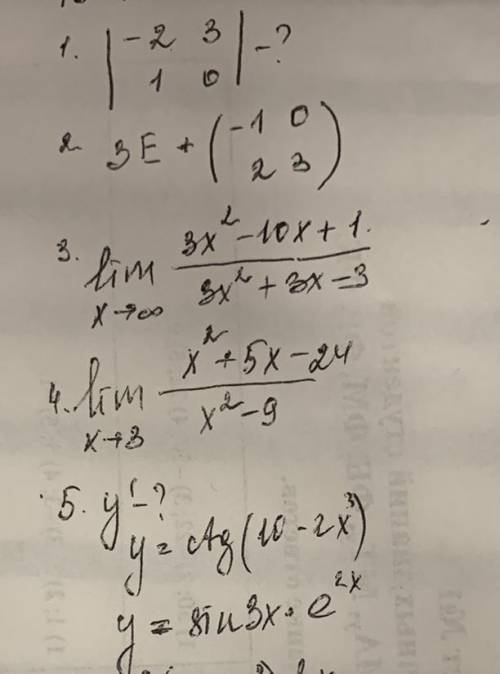 1. |-2 3| - ?
|1 0|
2. 3E + (-1 0)
(2 3)
3. lim 3x² - 10x + 1
x→∞ 3x² + 3x - 3
4. lim x² + 5x - 24
x→3 x² - 9
5. y' - ?
y = ctg(10 - 2x³)
y = sin3x · e²ˣ